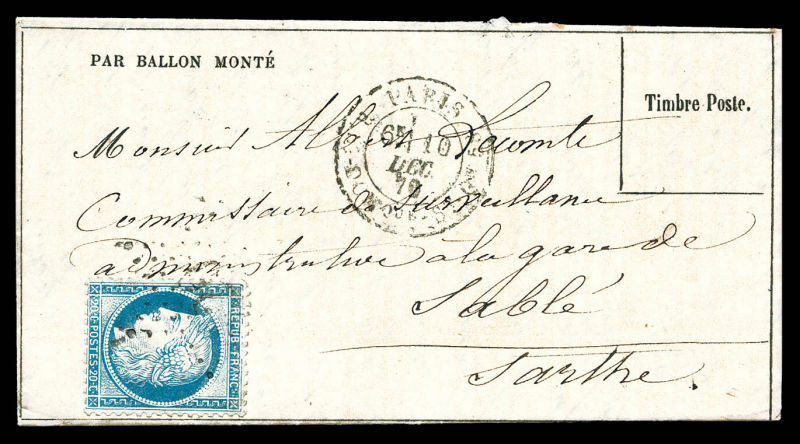 PAR BALLON MONTÉ
Timbre Poste.
PARIS
6E 10
DEC.
70
Monsieur Alfred Lecomte
Commissaire de Surveillance
administrative à la gare de
Sablé
Sarthe
20 c POSTES 20 c
REPUB FRANC